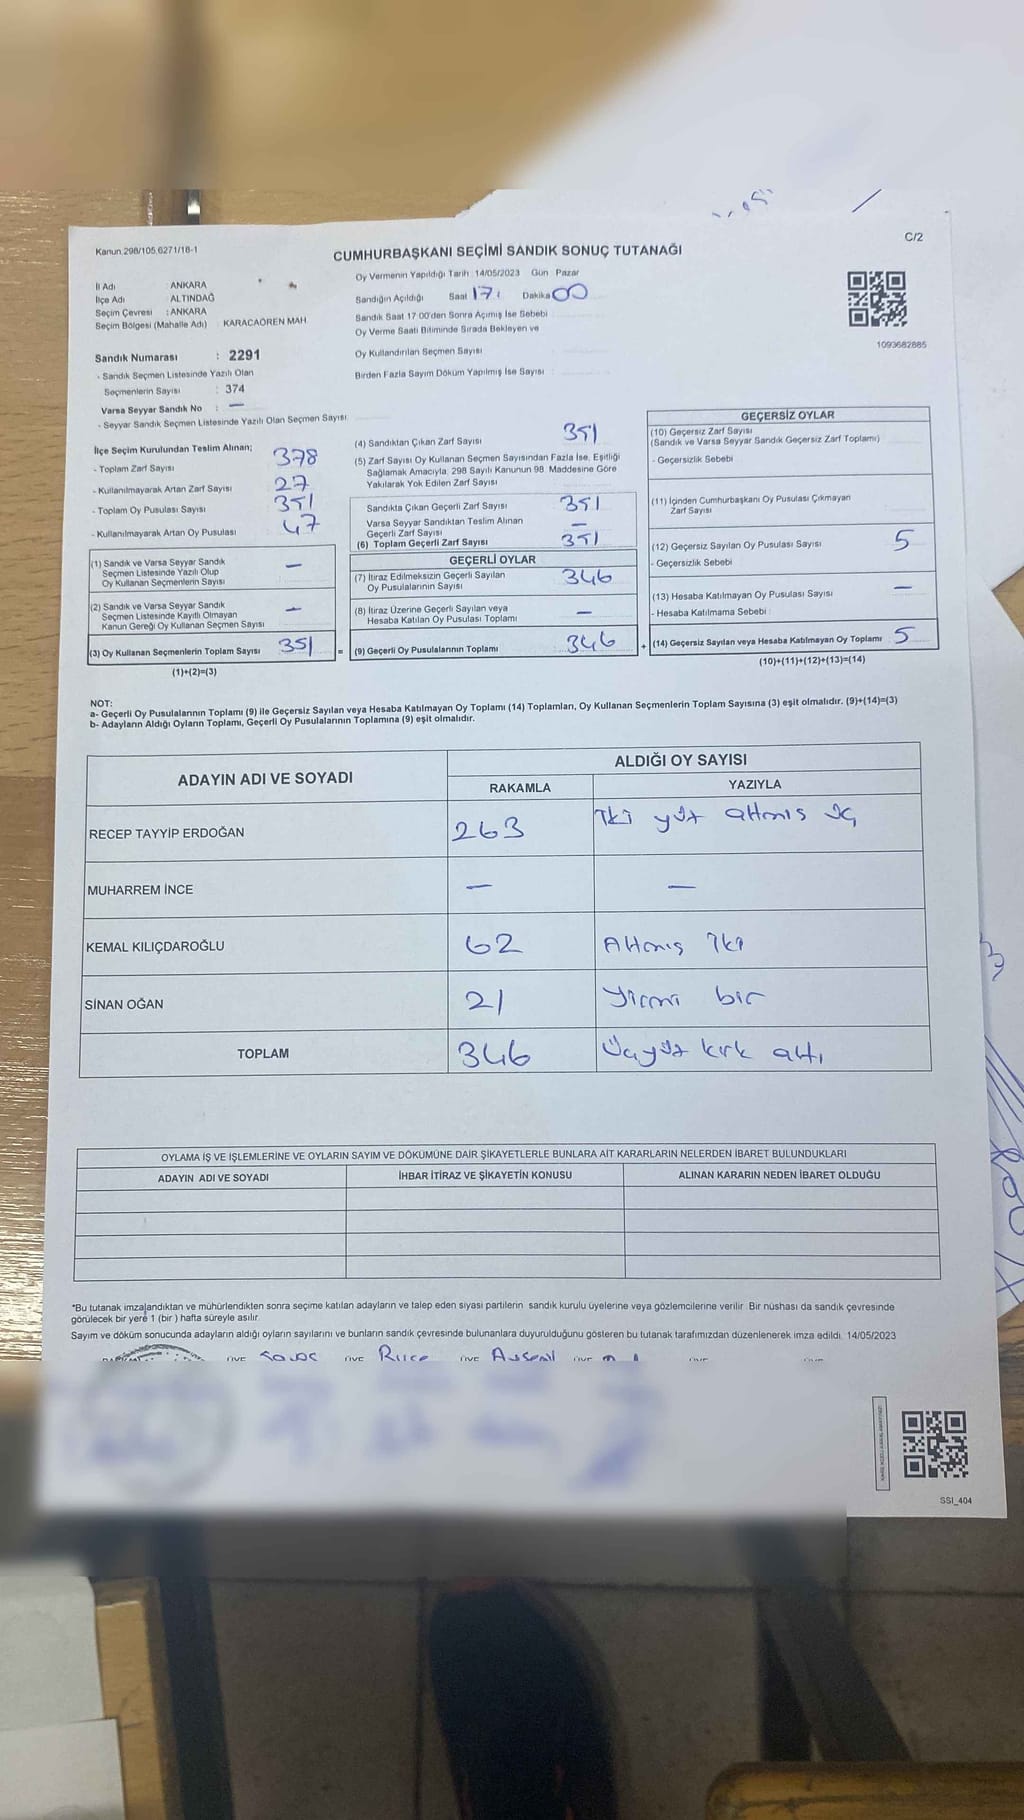 Kanun.298/105,6271/18-1
CUMHURBAŞKANI SEÇİMİ SANDIK SONUÇ TUTANAĞI
C/2
Oy Vermenin Yapıldığı Tarih: 14/05/2023 Gün Pazar
İl Adı ANKARA
İlçe Adı ALTINDAĞ
Seçim Çevresi : ANKARA
Seçim Bölgesi (Mahalle Adı) : KARACAÖREN MAH.
Sandığın Açıldığı Saat 17: Dakika 00
Sandık Saat 17:00'den Sonra Açımış İse Sebebi
Oy Verme Saati Bitiminde Sırada Bekleyen ve
Oy Kullandırılan Seçmen Sayısı
Birden Fazla Sayım Döküm Yapılmış İse Sayısı :
1093682885
Sandık Numarası : 2291
- Sandık Seçmen Listesinde Yazılı Olan
Seçmenlerin Sayısı : 374
Varsa Seyyar Sandık No : —
- Seyyar Sandık Seçmen Listesinde Yazılı Olan Seçmen Sayısı:
İlçe Seçim Kurulundan Teslim Alınan;
- Toplam Zarf Sayısı 378
- Kullanılmayarak Artan Zarf Sayısı 27
- Toplam Oy Pusulası Sayısı 351
- Kullanılmayarak Artan Oy Pusulası 47
(1) Sandık ve Varsa Seyyar Sandık
Seçmen Listesinde Yazılı Olup
Oy Kullanan Seçmenlerin Sayısı —
(2) Sandık ve Varsa Seyyar Sandık
Seçmen Listesinde Kayıtlı Olmayan
Kanun Gereği Oy Kullanan Seçmen Sayısı —
(3) Oy Kullanan Seçmenlerin Toplam Sayısı 351 =
(1)+(2)=(3)
(4) Sandıktan Çıkan Zarf Sayısı 351
(5) Zarf Sayısı Oy Kullanan Seçmen Sayısından Fazla İse, Eşitliği
Sağlamak Amacıyla, 298 Sayılı Kanunun 98. Maddesine Göre
Yakılarak Yok Edilen Zarf Sayısı
Sandıkta Çıkan Geçerli Zarf Sayısı 351
Varsa Seyyar Sandıktan Teslim Alınan
Geçerli Zarf Sayısı —
(6) Toplam Geçerli Zarf Sayısı 351
GEÇERLİ OYLAR
(7) İtiraz Edilmeksizin Geçerli Sayılan
Oy Pusulalarının Sayısı 346
(8) İtiraz Üzerine Geçerli Sayılan veya
Hesaba Katılan Oy Pusulası Toplamı —
(9) Geçerli Oy Pusulalarının Toplamı 346 +
GEÇERSİZ OYLAR
(10) Geçersiz Zarf Sayısı
(Sandık ve Varsa Seyyar Sandık Geçersiz Zarf Toplamı)
- Geçersizlik Sebebi
(11) İçinden Cumhurbaşkanı Oy Pusulası Çıkmayan
Zarf Sayısı
(12) Geçersiz Sayılan Oy Pusulası Sayısı 5
- Geçersizlik Sebebi
(13) Hesaba Katılmayan Oy Pusulası Sayısı —
- Hesaba Katılmama Sebebi :
(14) Geçersiz Sayılan veya Hesaba Katılmayan Oy Toplamı 5
(10)+(11)+(12)+(13)=(14)
NOT:
a- Geçerli Oy Pusulalarının Toplamı (9) ile Geçersiz Sayılan veya Hesaba Katılmayan Oy Toplamı (14) Toplamları, Oy Kullanan Seçmenlerin Toplam Sayısına (3) eşit olmalıdır. (9)+(14)=(3)
b- Adayların Aldığı Oyların Toplamı, Geçerli Oy Pusulalarının Toplamına (9) eşit olmalıdır.
ADAYIN ADI VE SOYADI ALDIĞI OY SAYISI
RAKAMLA YAZIYLA
RECEP TAYYİP ERDOĞAN 263 İki yüz altmış üç
MUHARREM İNCE — —
KEMAL KILIÇDAROĞLU 62 Altmış iki
SİNAN OĞAN 21 Yirmi bir
TOPLAM 346 Üçyüz kırk altı
OYLAMA İŞ VE İŞLEMLERİNE VE OYLARIN SAYIM VE DÖKÜMÜNE DAİR ŞİKAYETLERLE BUNLARA AİT KARARLARIN NELERDEN İBARET BULUNDUKLARI
ADAYIN ADI VE SOYADI İHBAR İTİRAZ VE ŞİKAYETİN KONUSU ALINAN KARARIN NEDEN İBARET OLDUĞU
*Bu tutanak imzalandıktan ve mühürlendikten sonra seçime katılan adayların ve talep eden siyasi partilerin sandık kurulu üyelerine veya gözlemcilerine verilir. Bir nüshası da sandık çevresinde
görülecek bir yere 1 (bir) hafta süreyle asılır.
Sayım ve döküm sonucunda adayların aldığı oyların sayılarını ve bunların sandık çevresinde bulunanlara duyurulduğunu gösteren bu tutanak tarafımızdan düzenlenerek imza edildi. 14/05/2023
SSI_404